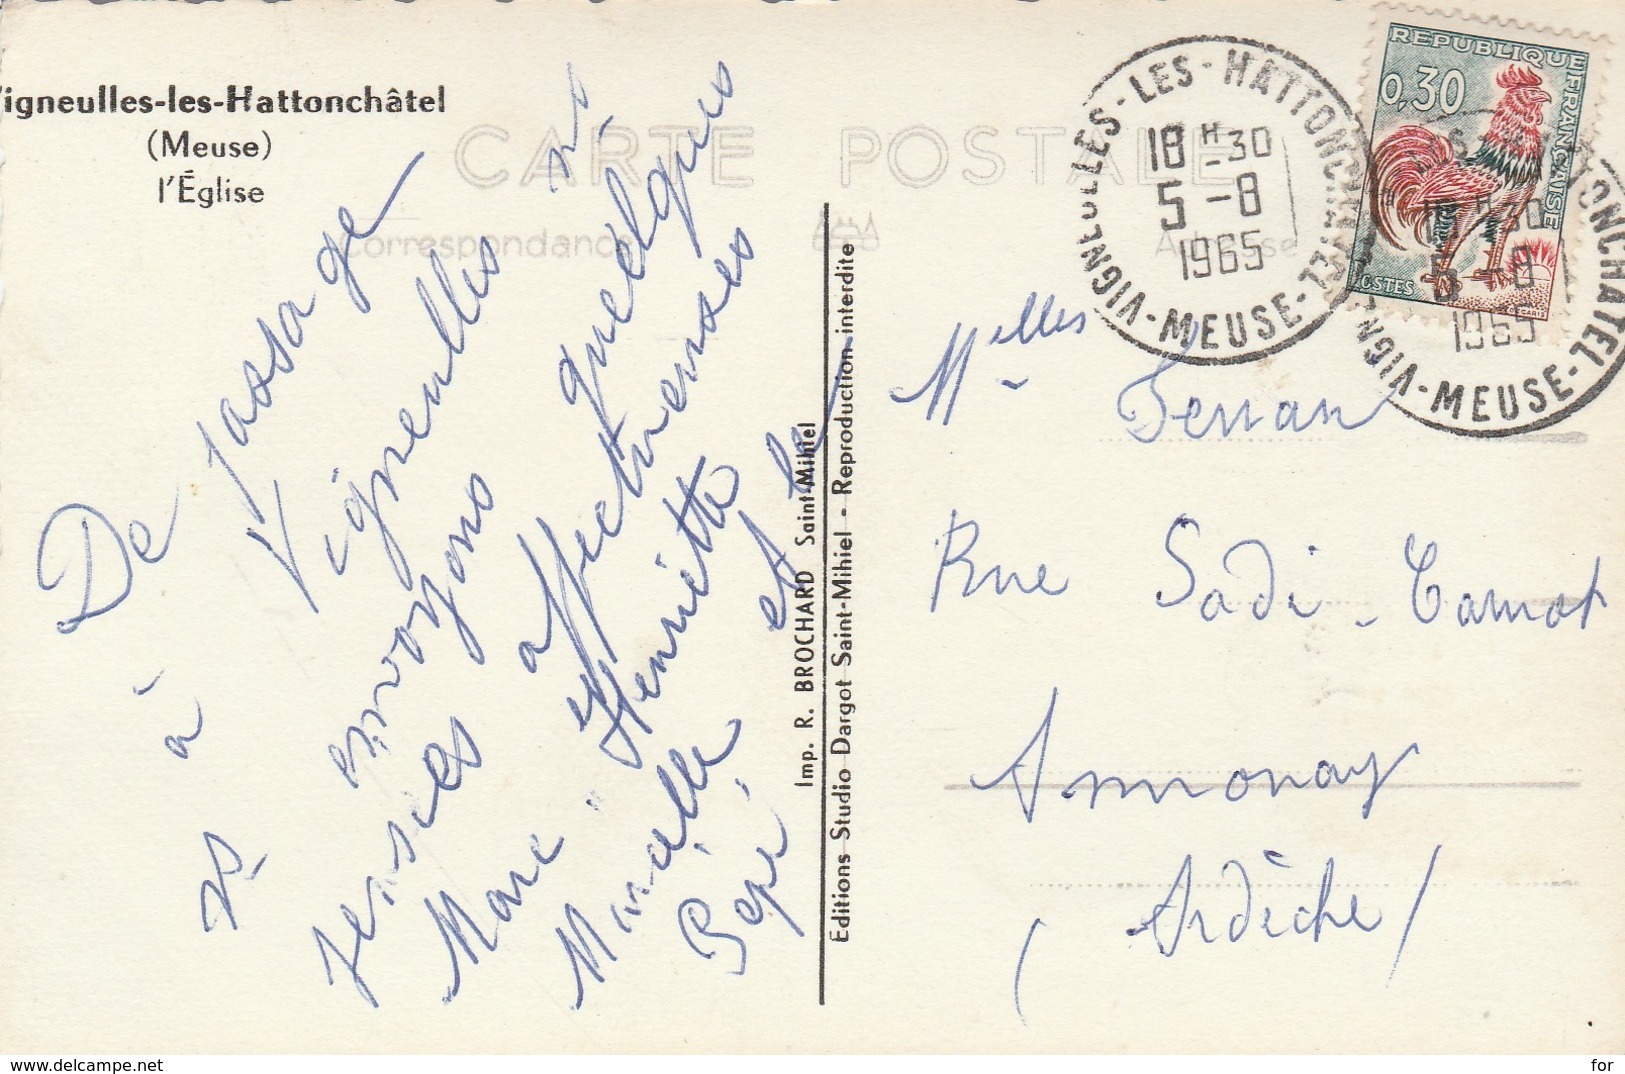 Vigneulles-les-Hattonchâtel
(Meuse)
l'Église
CARTE POSTALE
Correspondance
Adresse
De passage
à Vigneulles n
vs envoyons quelques
pensées affectueuses
Marc. Henriette
Marcelle et le
Pépé.
Imp. R. BROCHARD Saint-Mihiel
Éditions Studio Dargot Saint-Mihiel • Reproduction interdite
VIGNEULLES-LES-HATTONCHATEL
18 H -30
5 -8
1965
-MEUSE-
REPUBLIQUE FRANÇAISE
0,30
POSTES
DECARIS
18 H -30
5 -8
1965
-MEUSE-
Melles Ferran
Rue Sadi-Carnot
Annonay
(Ardèche)
delcampe.net
for